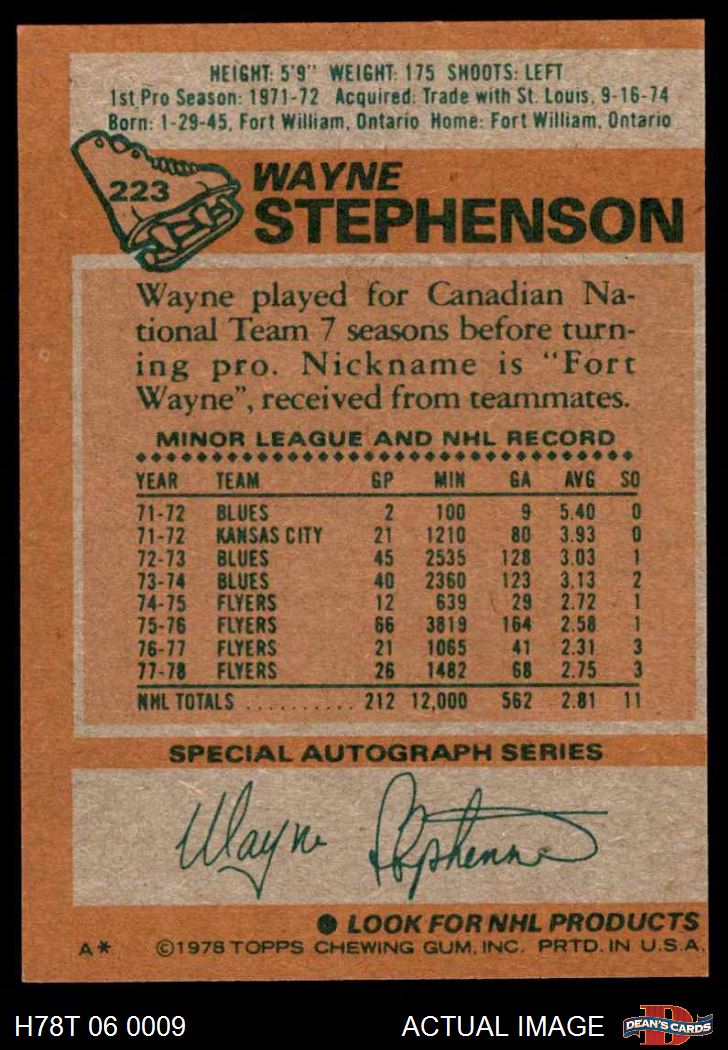 HEIGHT: 5'9" WEIGHT: 175 SHOOTS: LEFT
1st Pro Season: 1971-72 Acquired: Trade with St. Louis, 9-16-74
Born: 1-29-45, Fort William, Ontario Home: Fort William, Ontario
223
WAYNE
STEPHENSON
Wayne played for Canadian Na-
tional Team 7 seasons before turn-
ing pro. Nickname is "Fort
Wayne", received from teammates.
MINOR LEAGUE AND NHL RECORD
YEAR TEAM GP MIN GA AVG SO
71-72 BLUES 2 100 9 5.40 0
71-72 KANSAS CITY 21 1210 80 3.93 0
72-73 BLUES 45 2535 128 3.03 1
73-74 BLUES 40 2360 123 3.13 2
74-75 FLYERS 12 639 29 2.72 1
75-76 FLYERS 66 3819 164 2.58 1
76-77 FLYERS 21 1065 41 2.31 3
77-78 FLYERS 26 1482 68 2.75 3
NHL TOTALS .......... 212 12,000 562 2.81 11
SPECIAL AUTOGRAPH SERIES
Wayne Stephenson
● LOOK FOR NHL PRODUCTS
A* ©1978 TOPPS CHEWING GUM, INC. PRTD. IN U.S.A.
H78T 06 0009 ACTUAL IMAGE
D
DEAN'S CARDS